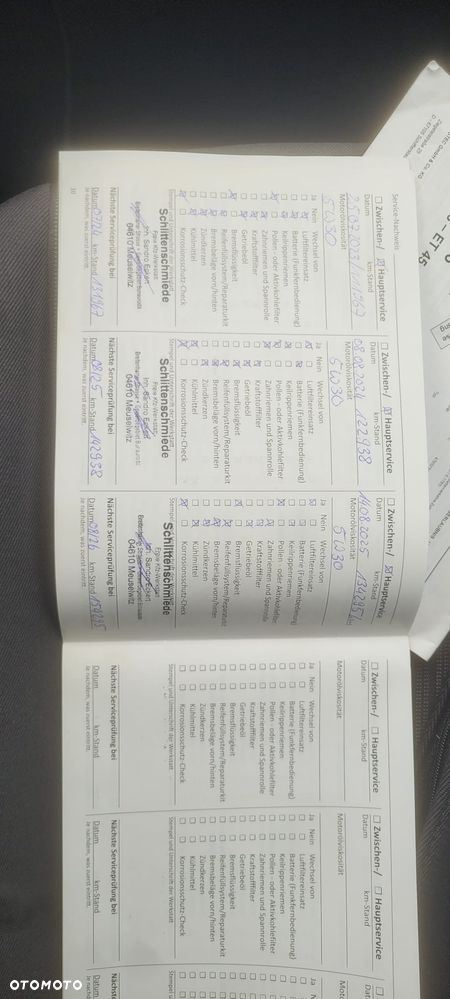 Service-Nachweis
☐ Zwischen-/ ☒ Hauptservice
Datum km-Stand
25.07.2023
Motorölviskosität
5W30
Ja Nein Wechsel von
Luftfiltereinsatz
Batterie (Funkfernbedienung)
Keilrippenriemen
Pollen- oder Aktivkohlefilter
Zahnriemen und Spannrolle
Kraftstofffilter
Getriebeöl
Bremsflüssigkeit
Reifenfüllsystem/Reparaturkit
Bremsbeläge vorn/hinten
Zündkerzen
Kühlmittel
Korrosionsschutz-Check
Stempel und Unterschrift der Werkstatt
Schlittenschmiede
Freie Kfz-Werkstatt
Inh. Sandro Eckert
04610 Meuselwitz
Nächste Serviceprüfung bei
Datum 07/24 km-Stand 131967
Je nachdem, was zuerst eintritt.
30
☐ Zwischen-/ ☒ Hauptservice
Datum km-Stand
08.08.2024 122938
Motorölviskosität
5W30
Ja Nein Wechsel von
Luftfiltereinsatz
Batterie (Funkfernbedienung)
Keilrippenriemen
Pollen- oder Aktivkohlefilter
Zahnriemen und Spannrolle
Kraftstofffilter
Getriebeöl
Bremsflüssigkeit
Reifenfüllsystem/Reparaturkit
Bremsbeläge vorn/hinten
Zündkerzen
Kühlmittel
Korrosionsschutz-Check
Stempel und Unterschrift der Werkstatt
Schlittenschmiede
Freie Kfz-Werkstatt
Inh. Sandro Eckert
04610 Meuselwitz
Nächste Serviceprüfung bei
Datum 08/25 km-Stand 142938
Je nachdem, was zuerst eintritt.
☐ Zwischen-/ ☒ Hauptservice
Datum km-Stand
14.08.2025 134295
Motorölviskosität
5W30
Ja Nein Wechsel von
Luftfiltereinsatz
Batterie (Funkfernbedienung)
Keilrippenriemen
Pollen- oder Aktivkohlefilter
Zahnriemen und Spannrolle
Kraftstofffilter
Getriebeöl
Bremsflüssigkeit
Reifenfüllsystem/Reparaturkit
Bremsbeläge vorn/hinten
Zündkerzen
Kühlmittel
Korrosionsschutz-Check
Schlittenschmiede
Freie Kfz-Werkstatt
Inh. Sandro Eckert
04610 Meuselwitz
Nächste Serviceprüfung bei
Datum 08/26 km-Stand 154295
Je nachdem, was zuerst eintritt.
☐ Zwischen-/ ☐ Hauptservice
Datum km-Stand
Motorölviskosität
Ja Nein Wechsel von
☐ ☐ Luftfiltereinsatz
☐ ☐ Batterie (Funkfernbedienung)
☐ ☐ Keilrippenriemen
☐ ☐ Pollen- oder Aktivkohlefilter
☐ ☐ Zahnriemen und Spannrolle
☐ ☐ Kraftstofffilter
☐ ☐ Getriebeöl
☐ ☐ Bremsflüssigkeit
☐ ☐ Reifenfüllsystem/Reparaturkit
☐ ☐ Bremsbeläge vorn/hinten
☐ ☐ Zündkerzen
☐ ☐ Kühlmittel
☐ ☐ Korrosionsschutz-Check
Stempel und Unterschrift der Werkstatt
Nächste Serviceprüfung bei
Datum km-Stand
Je nachdem, was zuerst eintritt.
☐ Zwischen-/ ☐ Hauptservice
Datum km-Stand
Motorölviskosität
Ja Nein Wechsel von
☐ ☐ Luftfiltereinsatz
☐ ☐ Batterie (Funkfernbedienung)
☐ ☐ Keilrippenriemen
☐ ☐ Pollen- oder Aktivkohlefilter
☐ ☐ Zahnriemen und Spannrolle
☐ ☐ Kraftstofffilter
☐ ☐ Getriebeöl
☐ ☐ Bremsflüssigkeit
☐ ☐ Reifenfüllsystem/Reparaturkit
☐ ☐ Bremsbeläge vorn/hinten
☐ ☐ Zündkerzen
☐ ☐ Kühlmittel
☐ ☐ Korrosionsschutz-Check
Stempel und Unterschrift der Werkstatt
Nächste Serviceprüfung bei
Datum km-Stand
Je nachdem, was zuerst eintritt.
ET 45
OTOMOTO